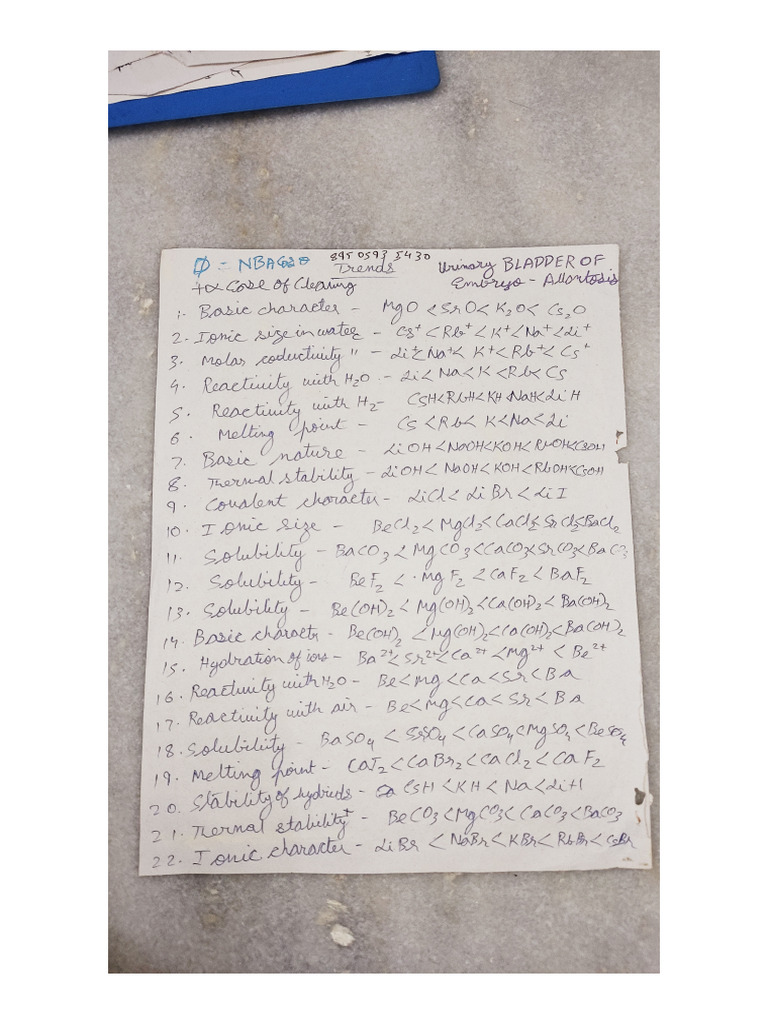 8950593 5430
Trends
Urinary BLADDER OF
Embryo - Allantosis
of Cleaning
1. Basic character - MgO < SrO < K₂O < Cs₂O
2. Ionic size in water - Cs⁺ < Rb⁺ < K⁺ < Na⁺ < Li⁺
3. Molar coductivity " - Li⁺ < Na⁺ < K⁺ < Rb⁺ < Cs⁺
4. Reactivity with H₂O - Li < Na < K < Rb < Cs
5. Reactivity with H₂ - CsH < RbH < KH < NaH < LiH
6. Melting point - Cs < Rb < K < Na < Li
7. Basic nature - LiOH < NaOH < KOH < RbOH < CsOH
8. Thermal stability - LiOH < NaOH < KOH < RbOH < CsOH
9. Covalent character - LiCl < LiBr < LiI
10. Ionic size - BeCl₂ < MgCl₂ < CaCl₂ < SrCl₂ < BaCl₂
11. Solubility - BaCO₃ < MgCO₃ < CaCO₃ < SrCO₃ < BaCO₃
12. Solubility - BeF₂ < MgF₂ < CaF₂ < BaF₂
13. Solubility - Be(OH)₂ < Mg(OH)₂ < Ca(OH)₂ < Ba(OH)₂
14. Basic charactr - Be(OH)₂ < Mg(OH)₂ < Ca(OH)₂ < Ba(OH)₂
15. Hydration of ions - Ba²⁺ < Sr²⁺ < Ca²⁺ < Mg²⁺ < Be²⁺
16. Reactivity with H₂O - Be < Mg < Ca < Sr < Ba
17. Reactivity with air - Be < Mg < Ca < Sr < Ba
18. Solubility - BaSO₄ < SrSO₄ < CaSO₄ < MgSO₄ < BeSO₄
19. Melting point - CaI₂ < CaBr₂ < CaCl₂ < CaF₂
20. Stability of hydrids - CsH < KH < Na < LiH
21. Thermal stability - BeCO₃ < MgCO₃ < CaCO₃ < BaCO₃
22. Ionic character - LiBr < NaBr < KBr < RbBr < CsBr